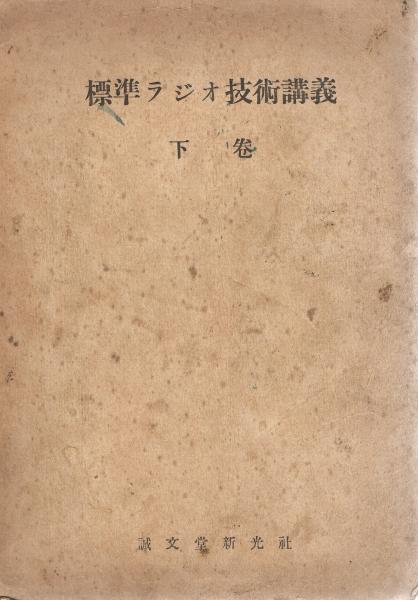 標準ラジオ技術講義
下卷
誠文堂新光社